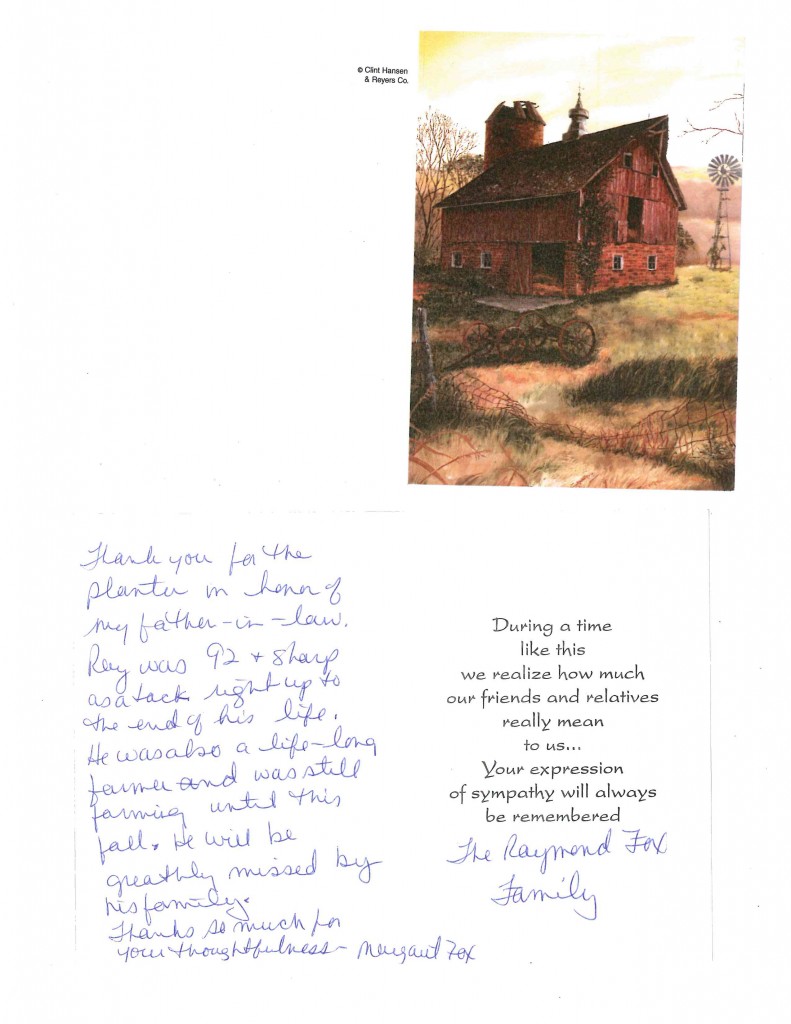 © Clint Hansen
& Reyers Co.
Thank you for the
planter in honor of
my father-in-law.
Ray was 92 + sharp
as a tack right up to
the end of his life.
He was also a life-long
farmer and was still
farming until this
fall. He will be
greathly missed by
his family.
Thanks so much for
your thoughtfulness- Margaret Fox
During a time
like this
we realize how much
our friends and relatives
really mean
to us...
Your expression
of sympathy will always
be remembered
The Raymond Fox
Family